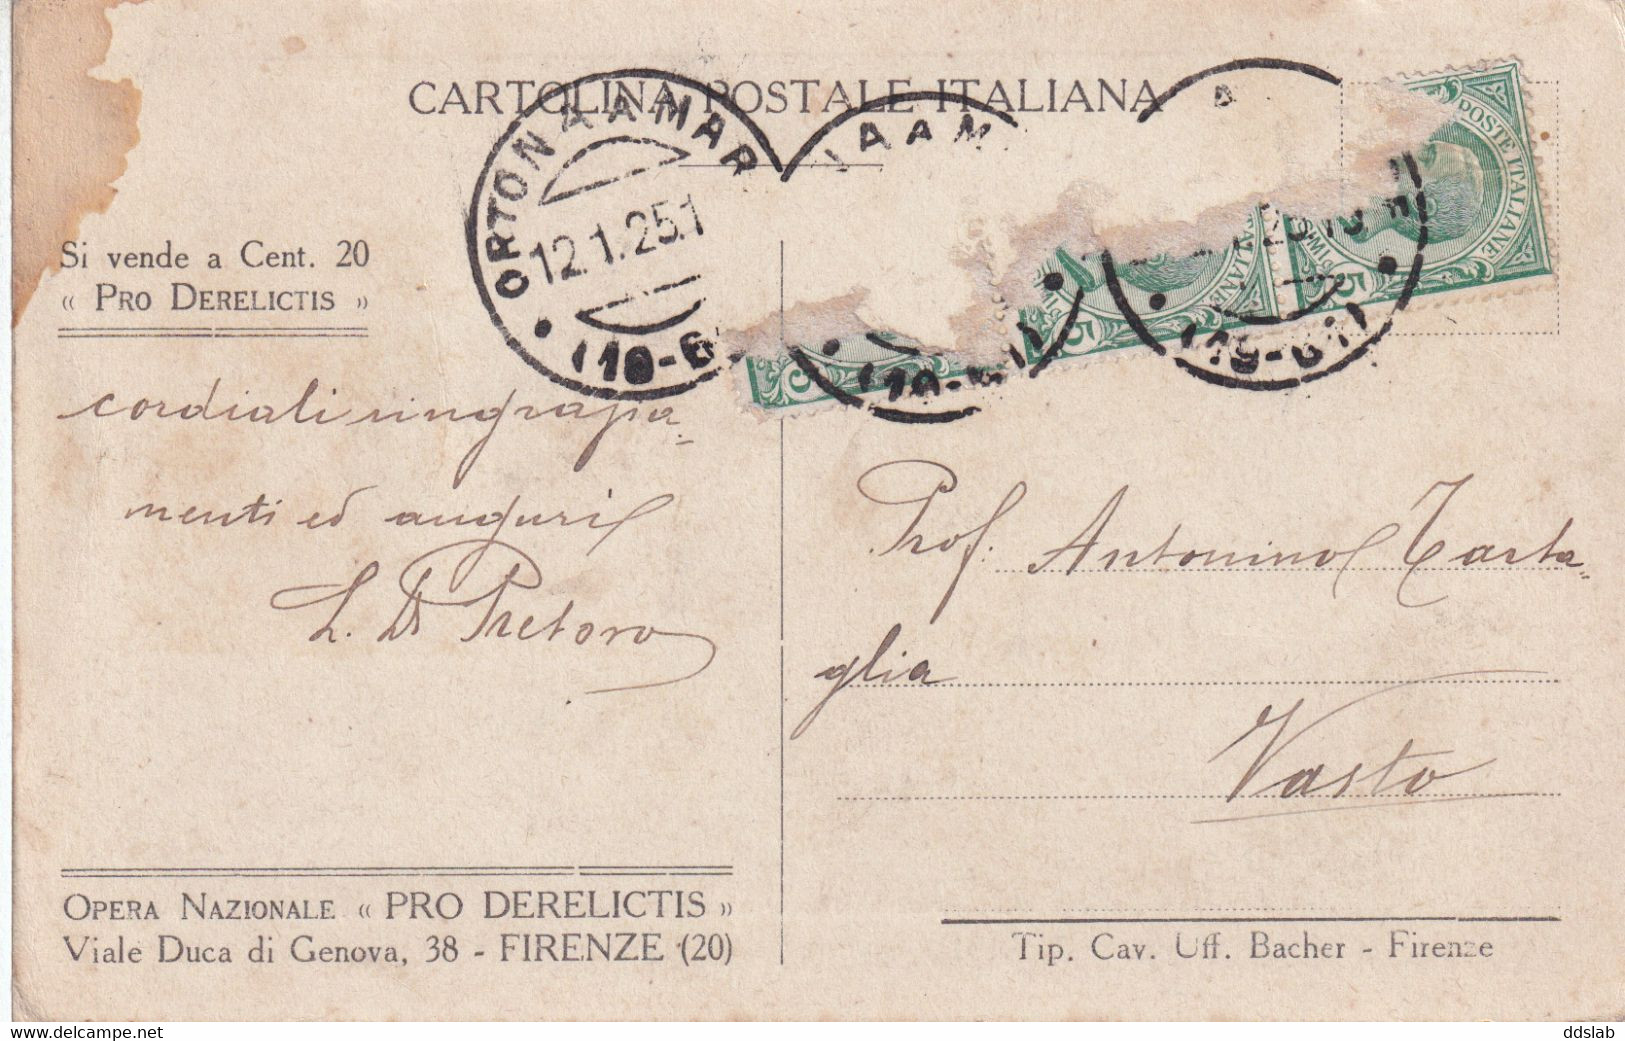 CARTOLINA POSTALE ITALIANA
ORTONA A MAR
12.1.25.1
(10-6
A A M
POSTE ITALIANE
Si vende a Cent. 20
« PRO DERELICTIS »
cordiali ringrazia=
menti ed auguri
L. Di Pretoro
Prof. Antonino Tarta=
glia
Vasto
OPERA NAZIONALE « PRO DERELICTIS »
Viale Duca di Genova, 38 - FIRENZE (20)
Tip. Cav. Uff. Bacher - Firenze
ddslab
delcampe.net